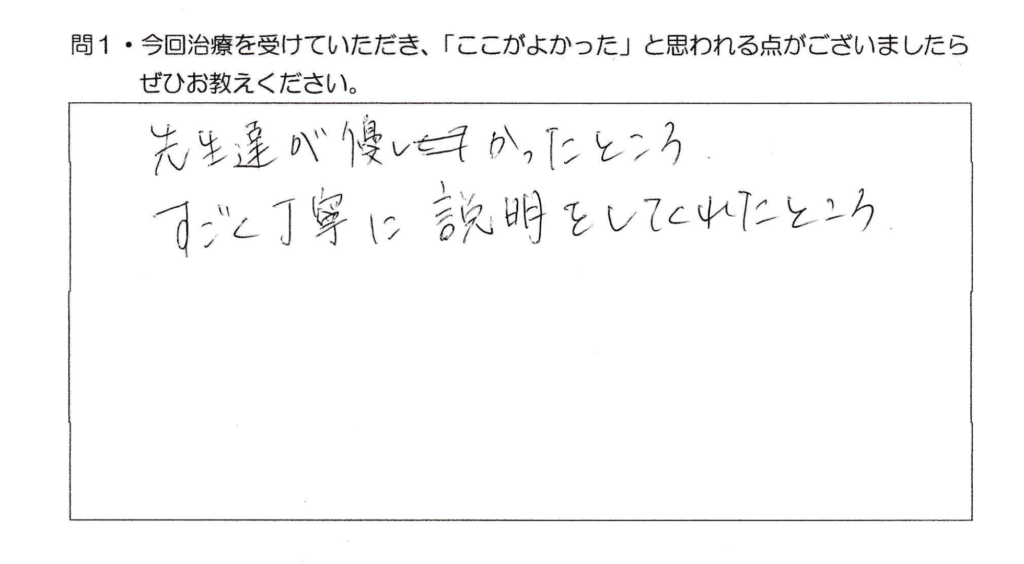 問1・今回治療を受けていただき、「ここがよかった」と思われる点がございましたら
ぜひお教えください。
先生達が優しかったところ.
すごく丁寧に説明をしてくれたところ.